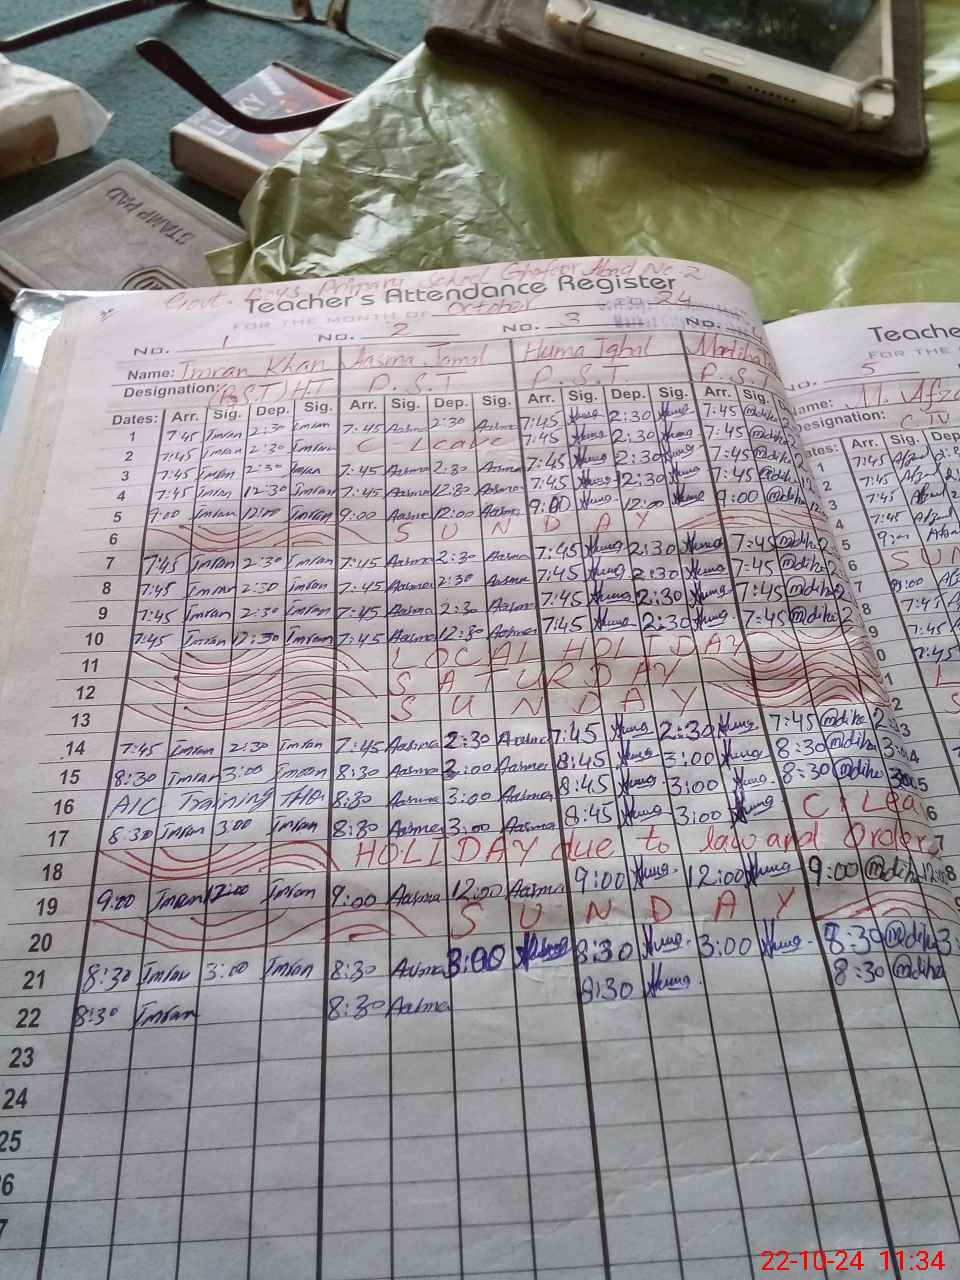 STAMP PAD
Govt. Boys Primary School No. 2
Teacher's Attendance Register
FOR THE MONTH OF October 24
No. 1 No. 2 No. 3 No.
Name: Imran Khan Aasma Jamal Huma Iqbal Madiha
Designation: (P.S.T) H.T P.S.T P.S.T P.S.T
Dates: Arr. Sig. Dep. Sig. Arr. Sig. Dep. Sig. Arr. Sig. Dep. Sig. Arr. Sig.
1 7:45 Imran 2:30 Imran 7:45 Aasma 2:30 Aasma 7:45 Huma 2:30 Huma 7:45 Madiha
2 7:45 Imran 2:30 Imran C Leave 7:45 Huma 2:30 Huma 7:45 Madiha
3 7:45 Imran 2:30 Imran 7:45 Aasma 2:30 Aasma 7:45 Huma 2:30 Huma 7:45 Madiha
4 7:45 Imran 12:30 Imran 7:45 Aasma 12:30 Aasma 7:45 Huma 12:30 Huma 7:45 Madiha
5 9:00 Imran 12:00 Imran 9:00 Aasma 12:00 Aasma 9:00 Huma 12:00 Huma 9:00 Madiha
6 SUNDAY
7 7:45 Imran 2:30 Imran 7:45 Aasma 2:30 Aasma 7:45 Huma 2:30 Huma 7:45 Madiha
8 7:45 Imran 2:30 Imran 7:45 Aasma 2:30 Aasma 7:45 Huma 2:30 Huma 7:45 Madiha
9 7:45 Imran 2:30 Imran 7:45 Aasma 2:30 Aasma 7:45 Huma 2:30 Huma 7:45 Madiha
10 7:45 Imran 12:30 Imran 7:45 Aasma 12:30 Aasma 7:45 Huma 2:30 Huma 7:45 Madiha
11 LOCAL HOLIDAY
12 SATURDAY
13 SUNDAY
14 7:45 Imran 2:30 Imran 7:45 Aasma 2:30 Aasma 7:45 Huma 2:30 Huma 7:45 Madiha
15 8:30 Imran 3:00 Imran 8:30 Aasma 3:00 Aasma 8:45 Huma 3:00 Huma 8:30 Madiha 3:00
16 AIC Training 8:30 Aasma 3:00 Aasma 8:45 Huma 3:00 Huma 8:30 Madiha 3:00
17 8:30 Imran 3:00 Imran 8:30 Aasma 3:00 Aasma 8:45 Huma 3:00 Huma C Lea
18 HOLIDAY due to law and Order
19 9:00 Imran 12:00 Imran 9:00 Aasma 12:00 Aasma 9:00 Huma 12:00 Huma 9:00 Madiha 12:00
20 SUNDAY
21 8:30 Imran 3:00 Imran 8:30 Aasma 3:00 Aasma 8:30 Huma 3:00 Huma 8:30 Madiha 3:
22 8:30 Imran 8:30 Aasma 8:30 Huma 8:30 Madiha
23
24
25
6
7
Teache
FOR THE
No. 5
Name: M. Afza
Designation: C.IV
Arr. Sig. Dep
1 7:45 Afzal 2:
2 7:45 Afzal 2
3 7:45 Afzal
4 7:45 Afzal
5 9:00 Afzal
6 SUN
7 8:00 Afz
8 7:45
9 7:45
0 7:45
22-10-24 11:34